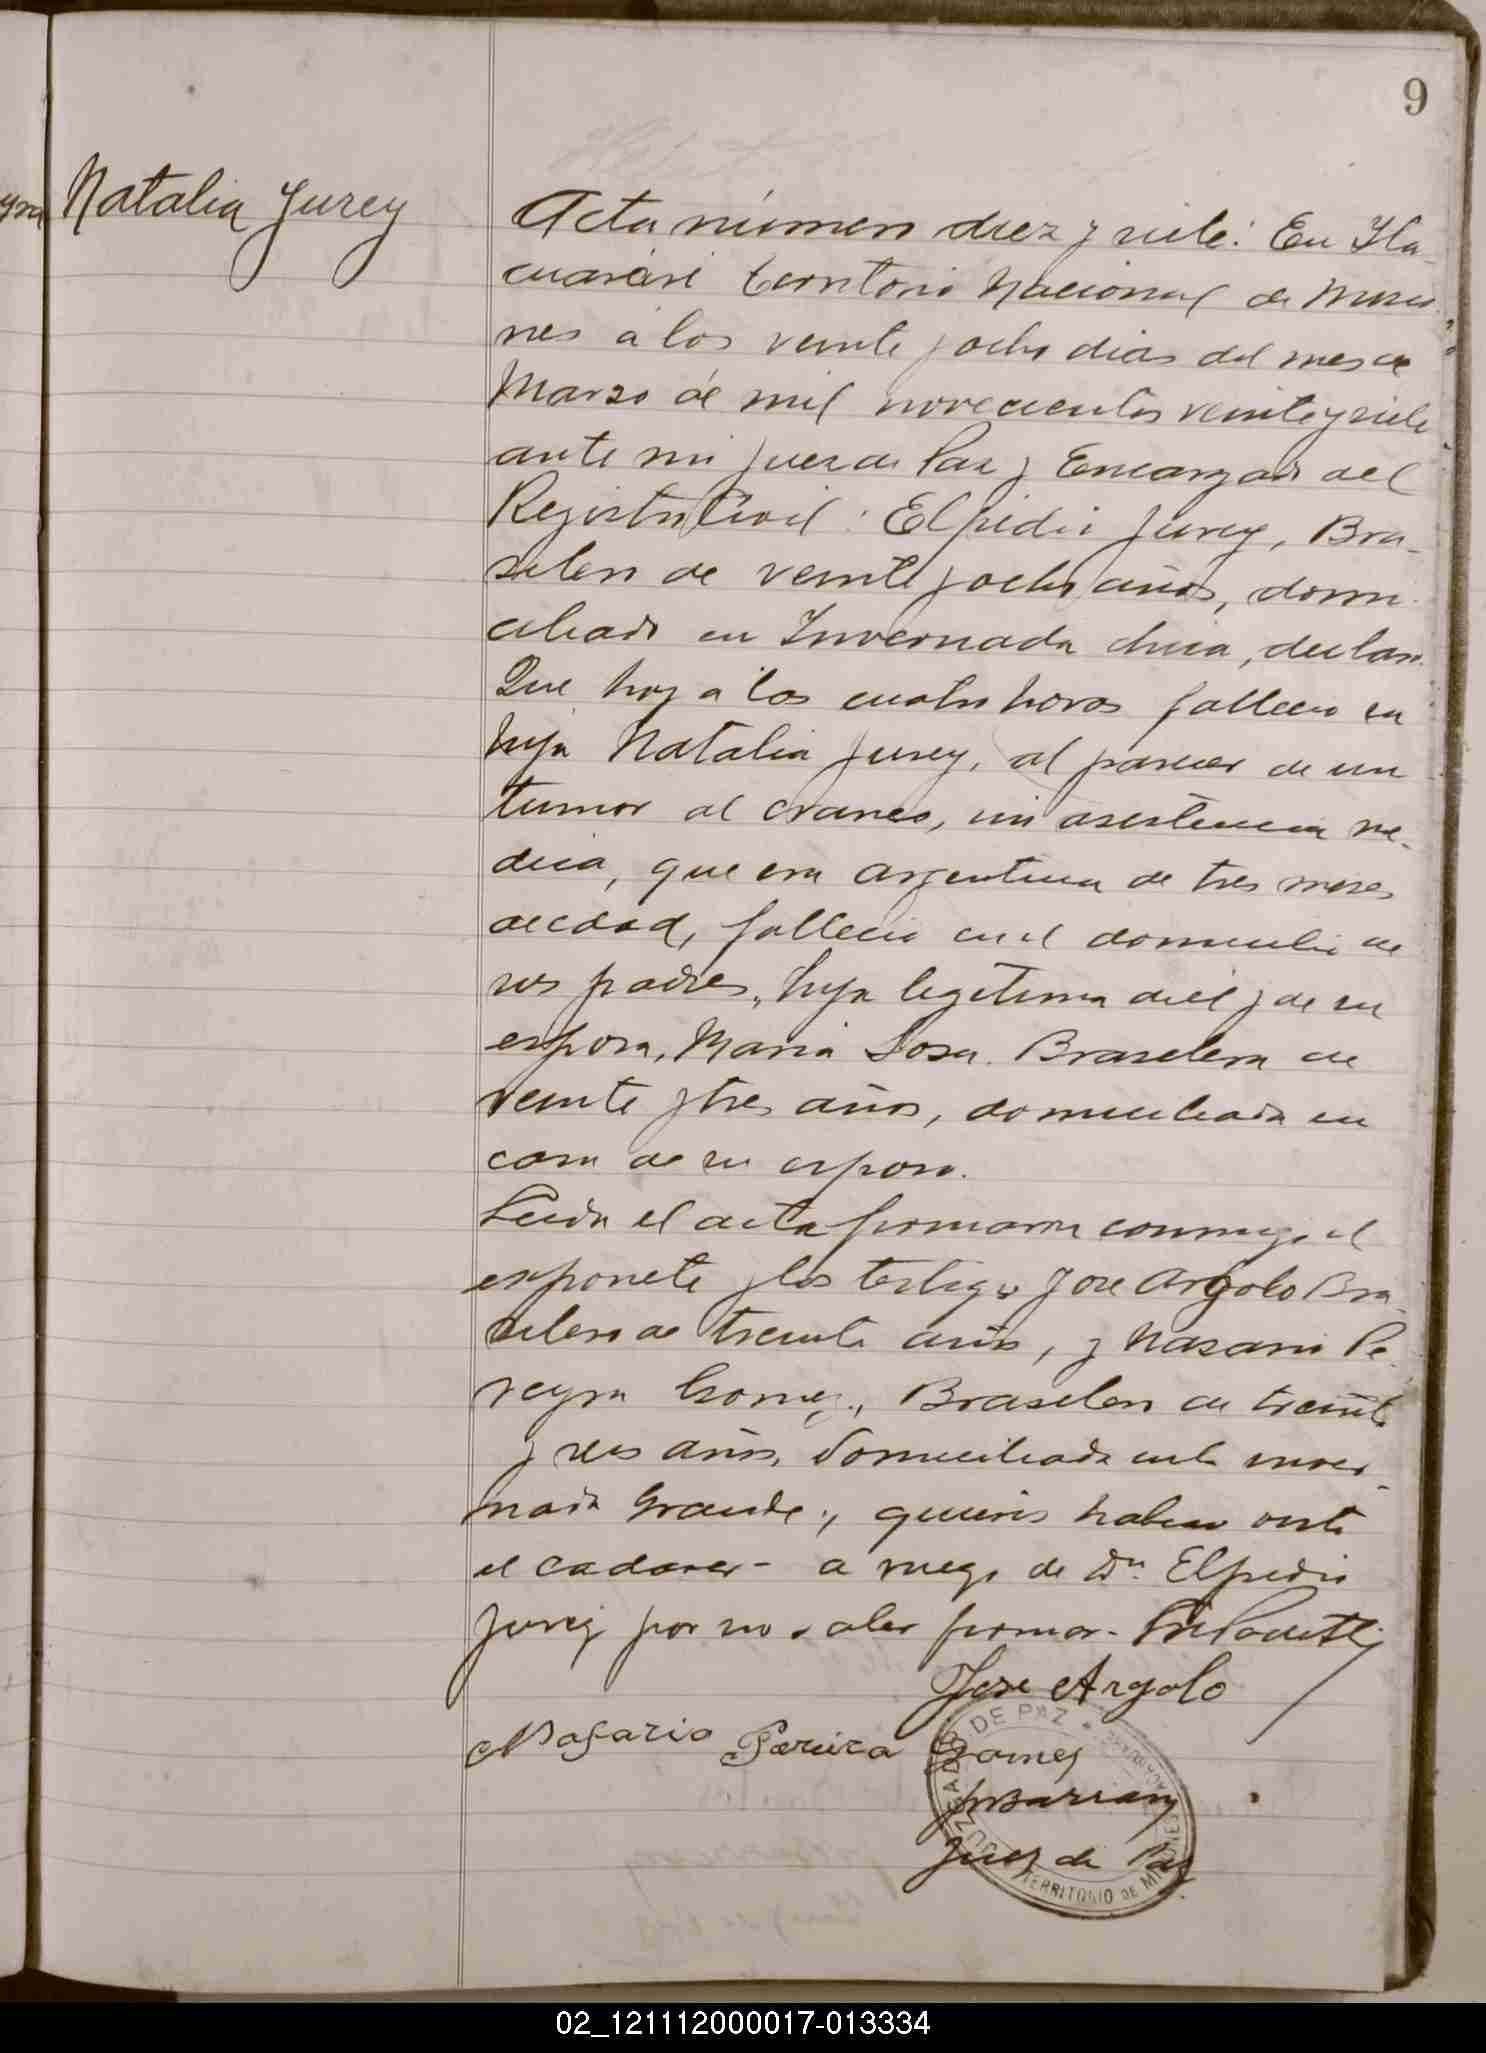 9
Natalia Jurey
Acta número diez y siete: En Ita-
cuararé territorio Nacional de Misio
nes a los veinte y ocho dias del mes de
Marzo de mil novecientos veinte y siete
ante mi Juez de Paz y Encargado del
Registro Civil: Elpidio Jurey, Bra-
silero de veinte y ocho años, domi
ciliado en Invernada chica, declaró
Que hoy a las cuatro horas fallecio su
hija Natalia Jurey, al parecer de un
tumor al craneo, sin asistencia me-
dica, que era argentina de tres meses
de edad, fallecio en el domicilio de
sus padres, hija legitima de él y de su
esposa, Maria Sosa. Brasilera de
veinte y tres años, domiciliada en
casa de su esposo.
Leida el acta firmaron conmigo el
exponete y los testigos Jose Argolo Bra-
silero de treinta años, y Nasario Pe-
reyra Gomez., Brasilero de treinta
y seis años, domiciliado en la inver-
nada Grande., quienes habian visto
el cadaver - a ruego de Dn. Elpidio
Jurey por no saber firmar -
Jose Argolo
Nasario Pereira Gomes
Juez de Paz
JUZGADO DE PAZ
TERRITORIO DE MISIONES
02_121112000017-013334